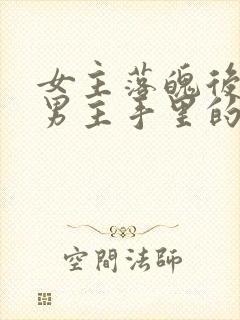 女主落魄後
男主手里的
空間法師